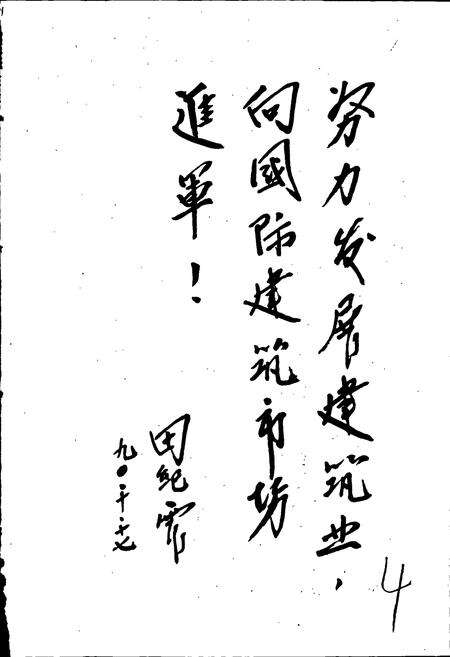 努力发展建筑业，
向國际建筑市场
進軍！
田纪雲
九〇·十·十七
4